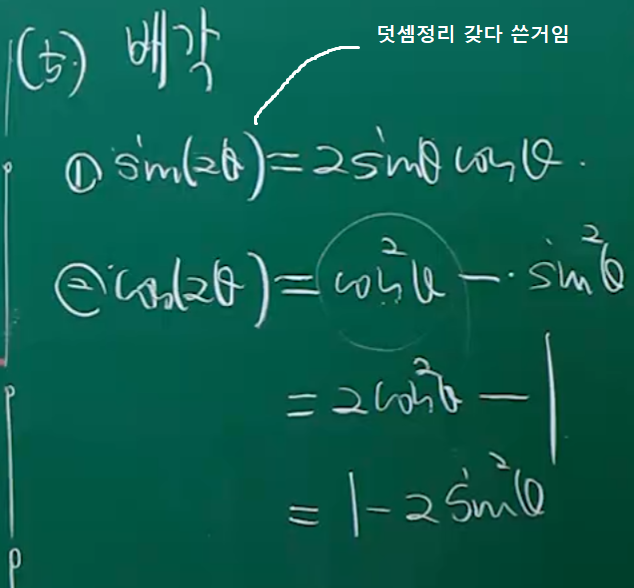 덧셈정리 갖다 쓴거임
(5) 배각
① sin(2θ) = 2sinθ cosθ.
② cos(2θ) = cos²θ - sin²θ
= 2cos²θ - 1
= 1 - 2sin²θ